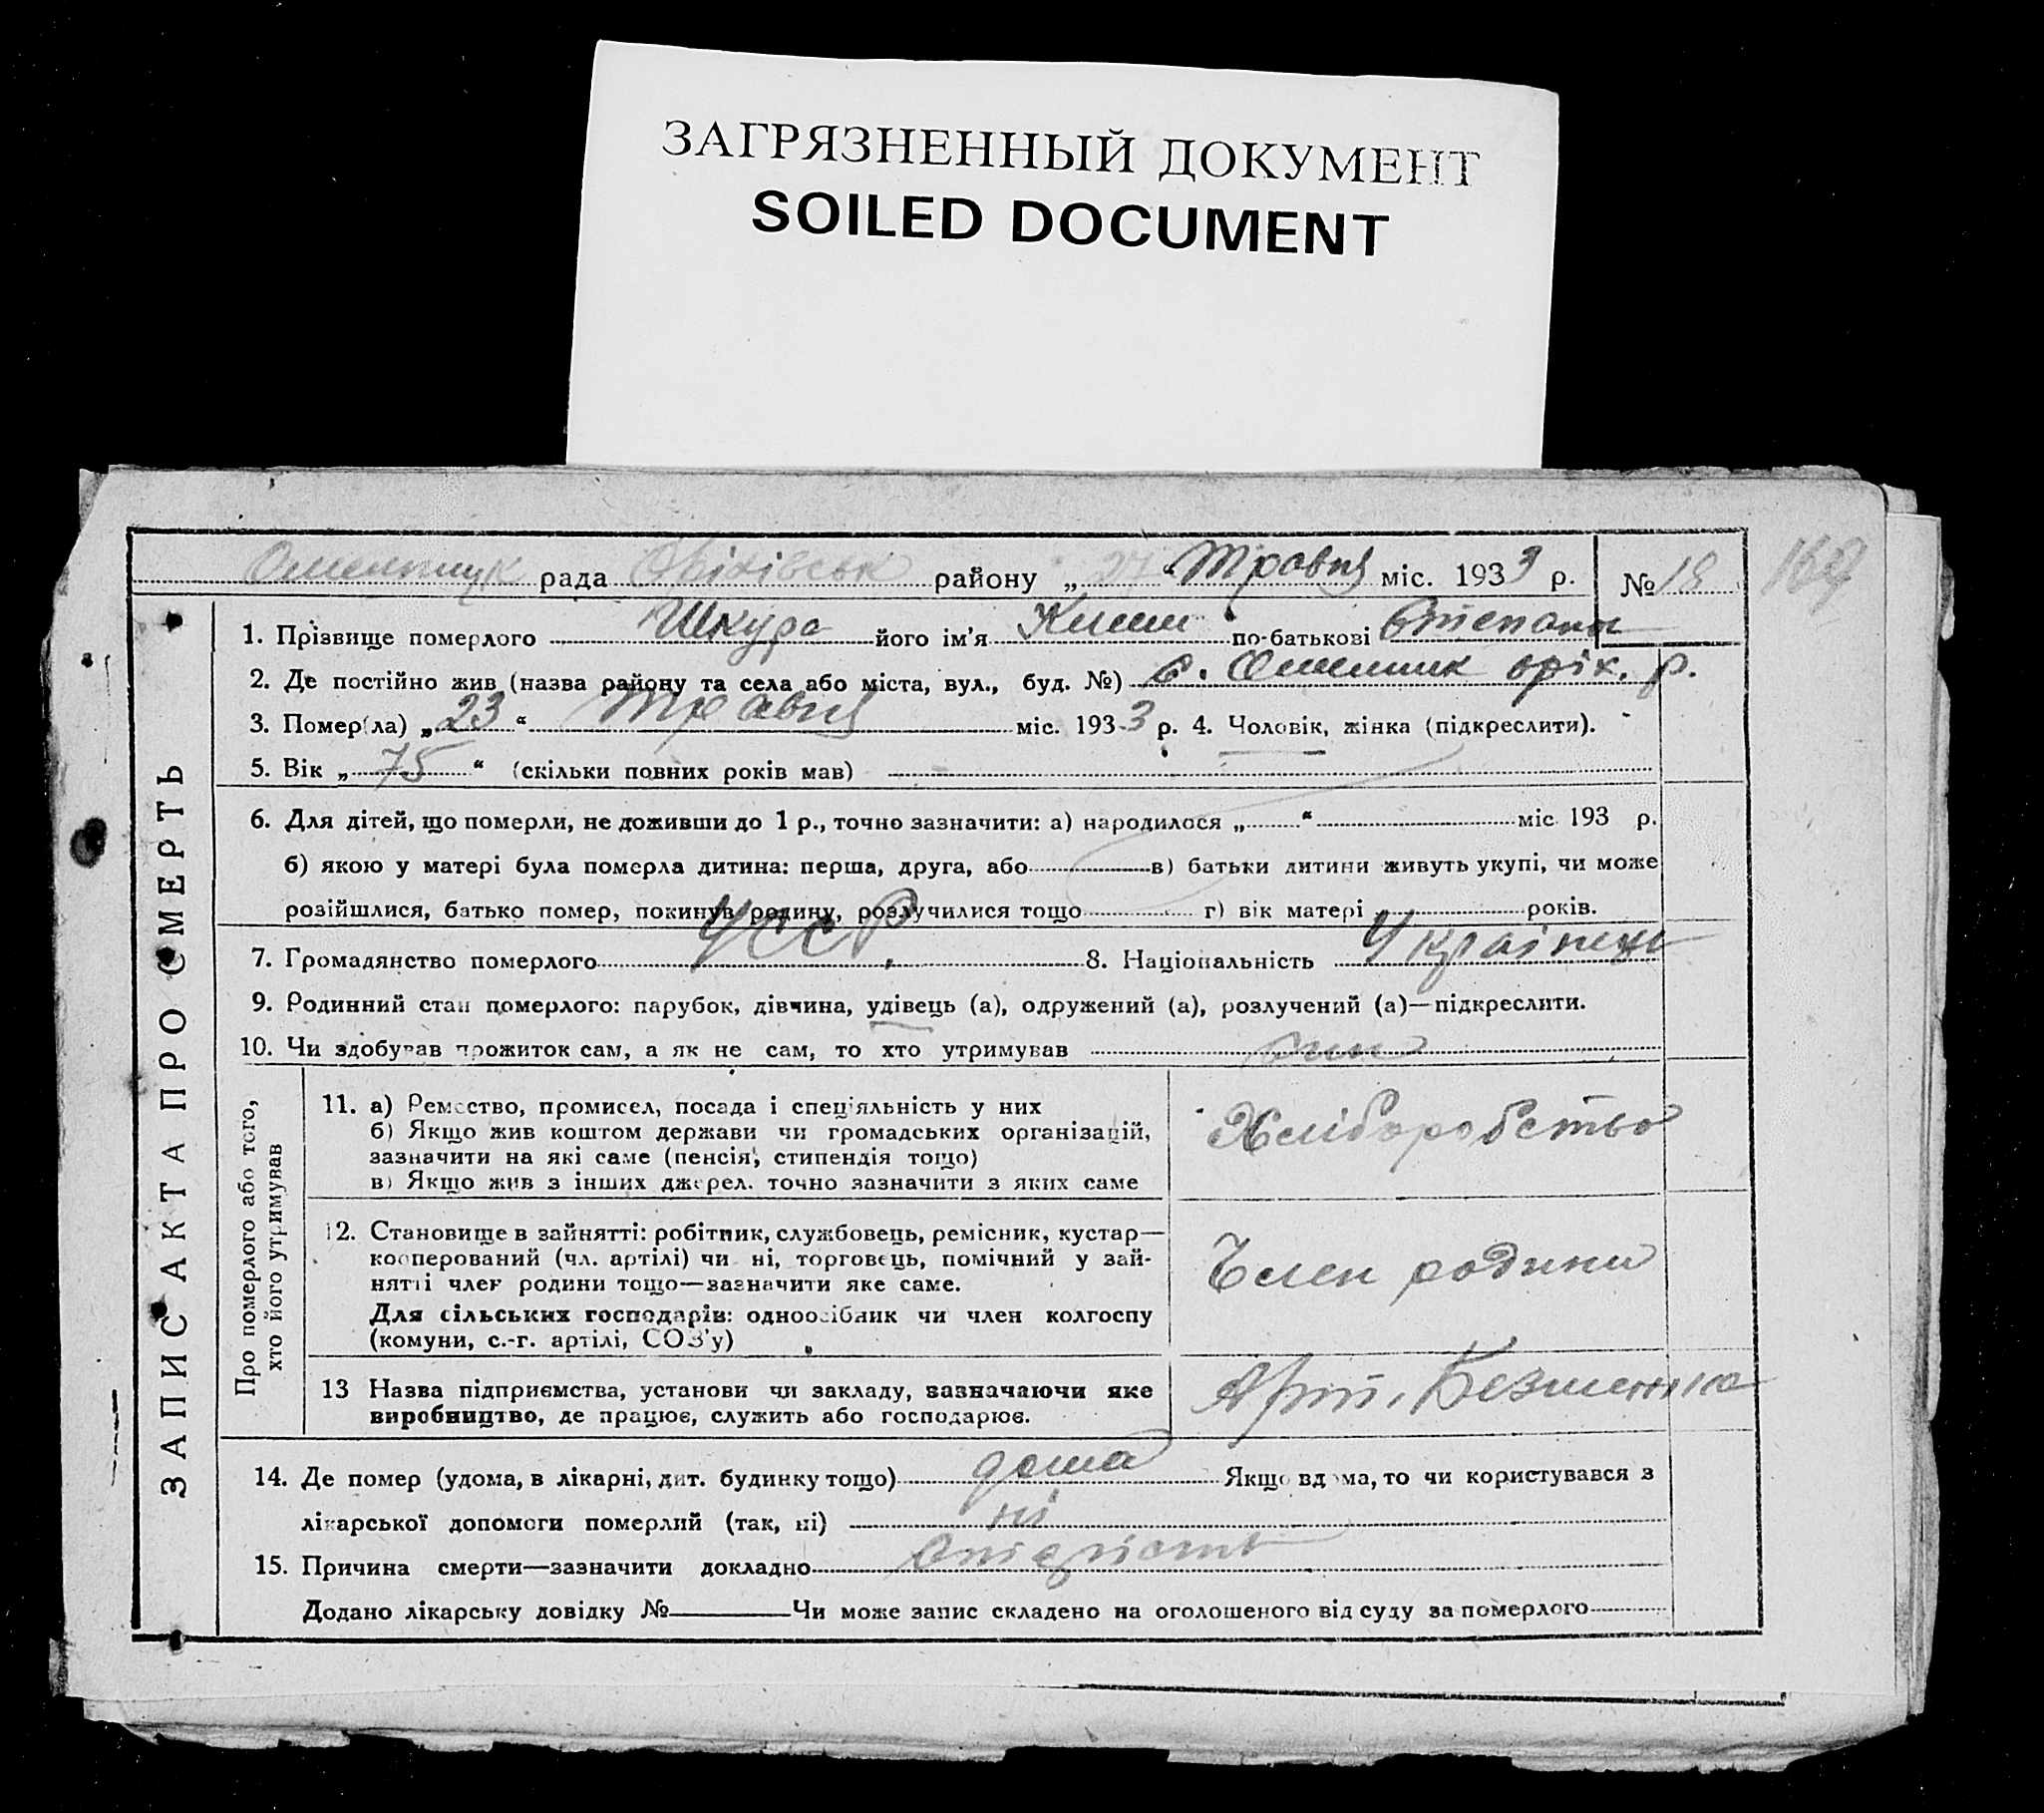 ЗАГРЯЗНЕННЫЙ ДОКУМЕНТ
SOILED DOCUMENT
рада Оріхівськ району „27“ Травня міс. 1933 р. № 18
ЗАПИС АКТА ПРО СМЕРТЬ
1. Прізвище померлого Шкура його ім'я Клим по-батькові Степанов
2. Де постійно жив (назва району та села або міста, вул., буд. №) с. Омельник оріх. р.
3. Помер(ла) „23“ Травня міс. 1933 р. 4. Чоловік, жінка (підкреслити).
5. Вік „75“ (скільки повних років мав)
6. Для дітей, що померли, не доживши до 1 р., точно зазначити: а) народилося „ “ міс 193 р.
б) якою у матері була померла дитина: перша, друга, або в) батьки дитини живуть укупі, чи може
розійшлися, батько помер, покинув родину, розлучилися тощо г) вік матері років.
7. Громадянство померлого УССР 8. Національність Українец
9. Родинний стан померлого: парубок, дівчина, удівець (а), одружений (а), розлучений (а)—підкреслити.
10. Чи здобував прожиток сам, а як не сам, то хто утримував син
Про померлого або того,
хто його утримував
11. а) Ремество, промисел, посада і спеціяльність у них
б) Якщо жив коштом держави чи громадських організацій,
зазначити на які саме (пенсія, стипендія тощо)
в) Якщо жив з інших джерел. точно зазначити з яких саме
Хліборобство
12. Становище в зайнятті: робітник, службовець, ремісник, кустар—
кооперований (чл. артілі) чи ні, торговець, помічний у зай-
нятті член родини тощо—зазначити яке саме.
Для сільських господарів: одноосібник чи член колгоспу
(комуни, с.-г. артілі, СОЗ'у)
Член родини
13 Назва підприємства, установи чи закладу, зазначаючи яке
виробництво, де працює, служить або господарює.
Арт.
14. Де помер (удома, в лікарні, дит. будинку тощо) дома Якщо вдома, то чи користувався з
лікарської допомоги померлий (так, ні) ні
15. Причина смерти—зазначити докладно
Додано лікарську довідку № Чи може запис складено на оголошеного від суду за померлого